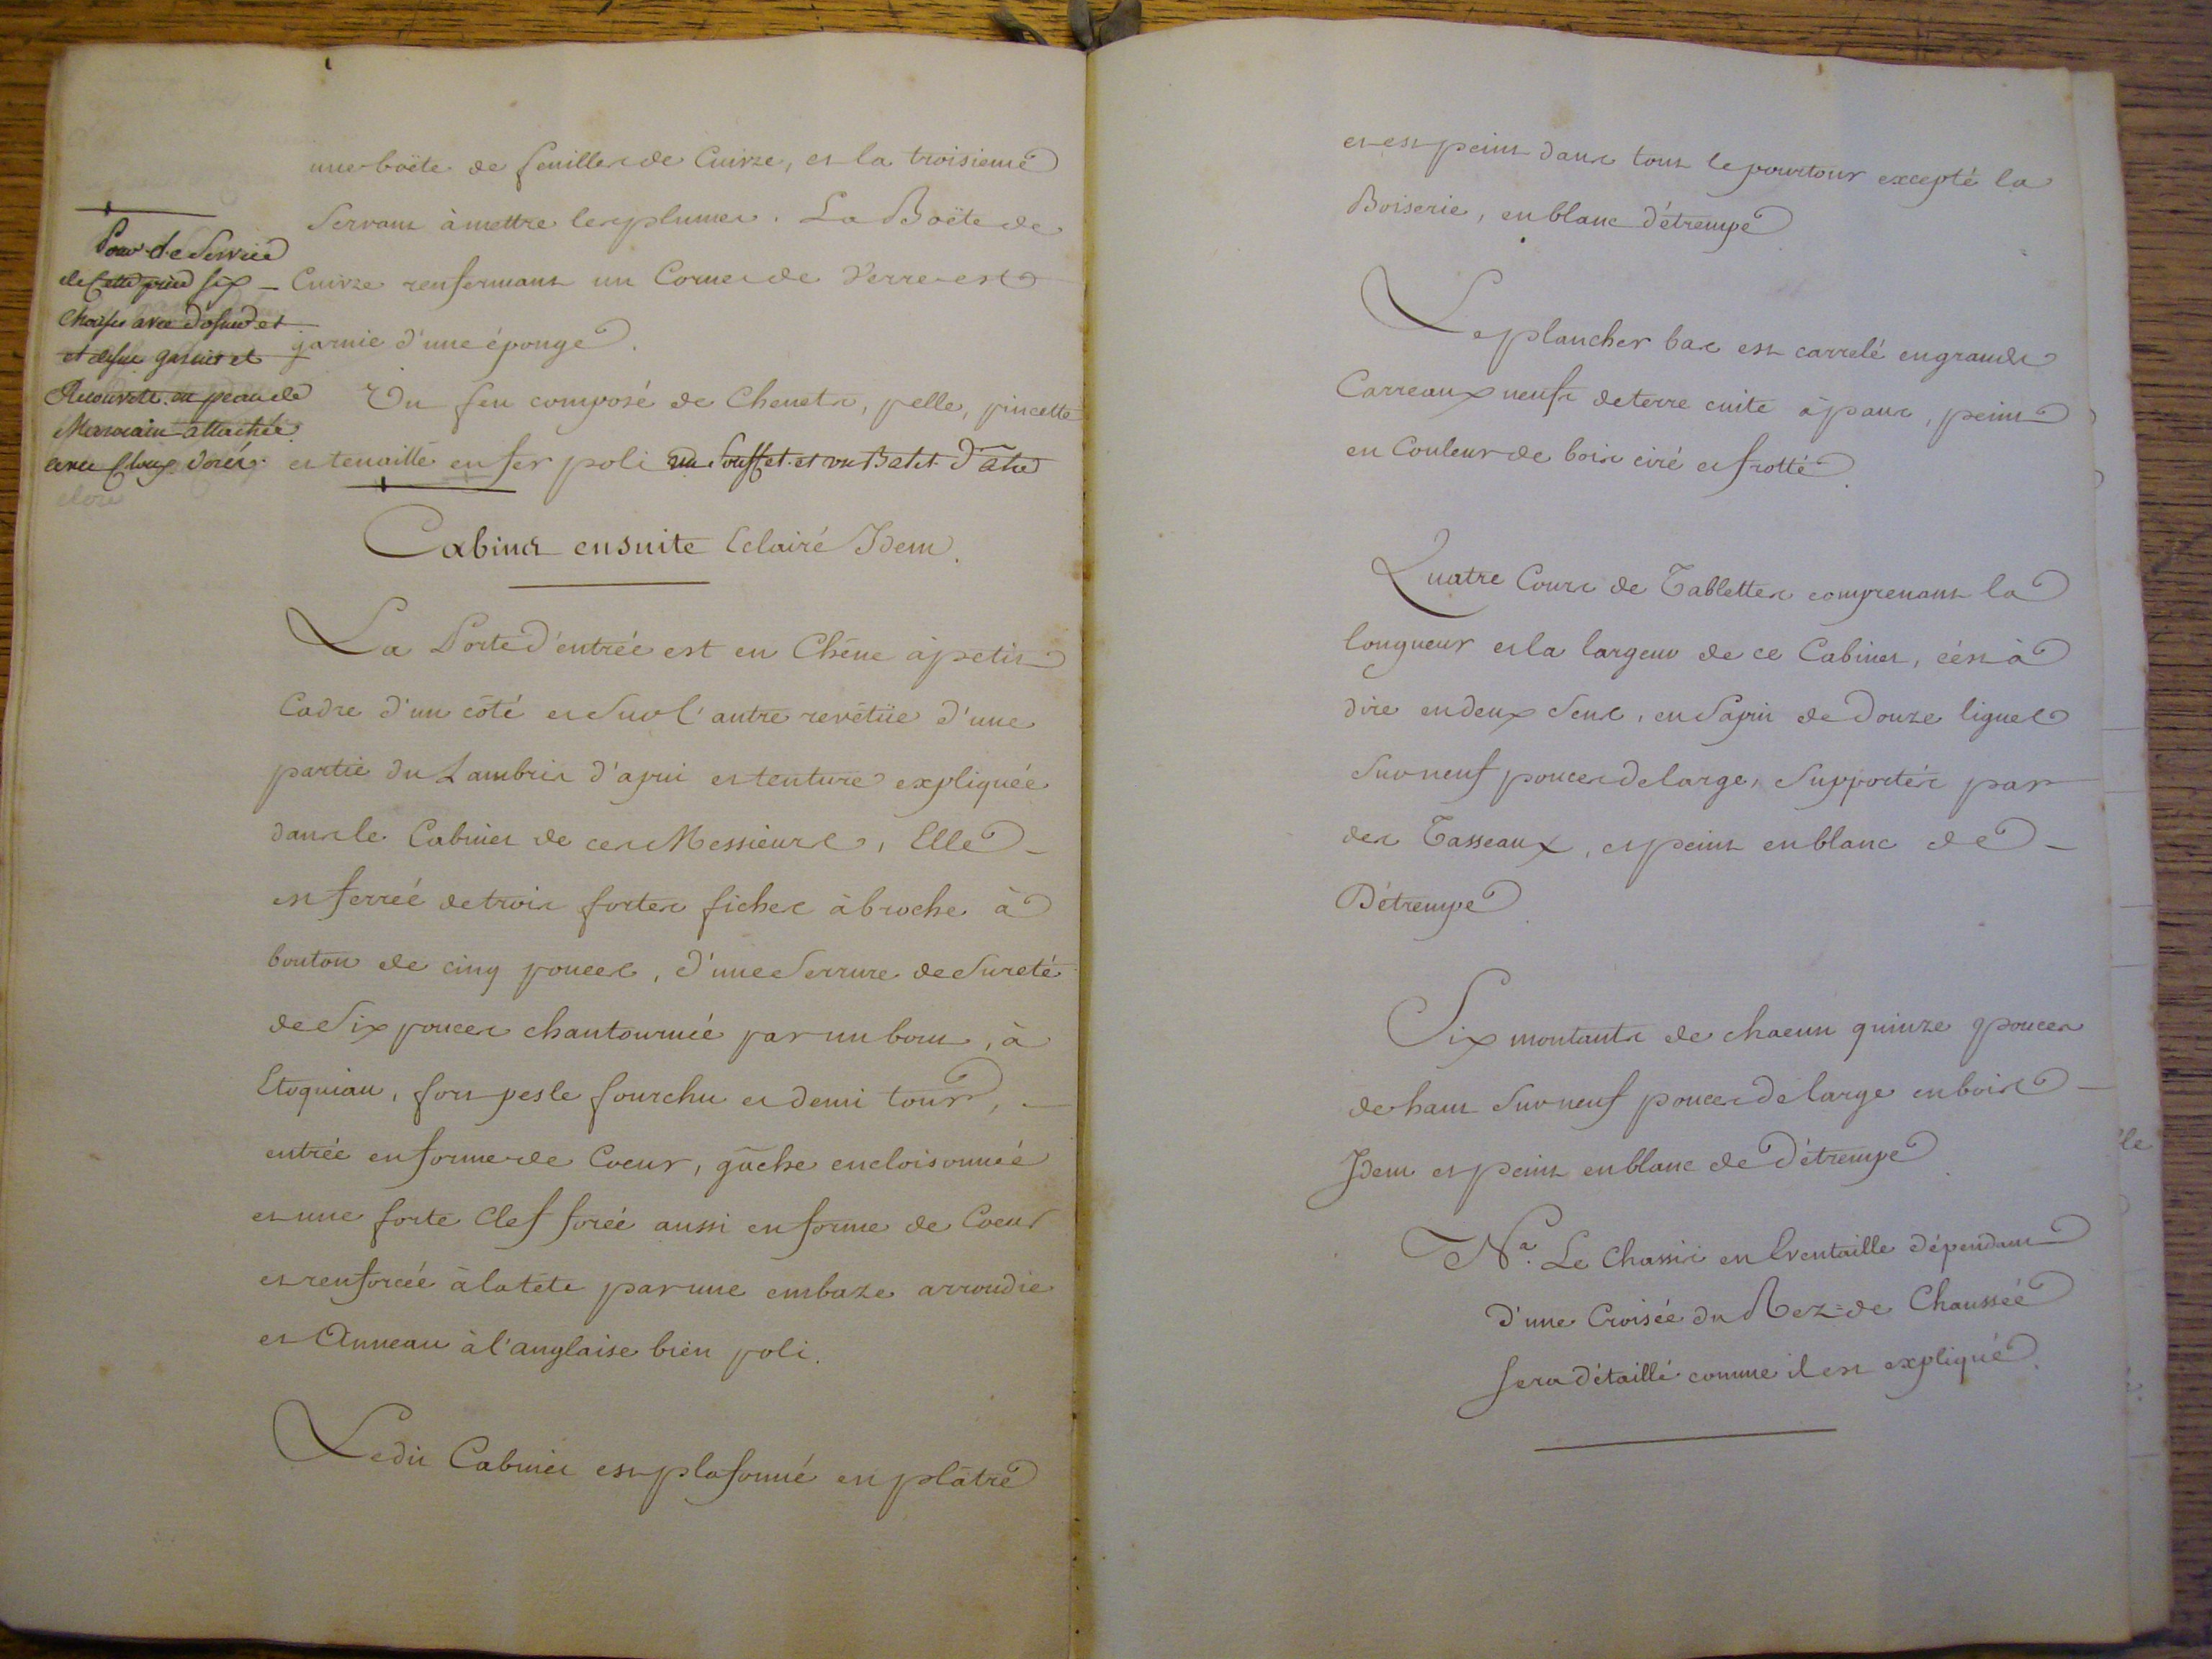 une boëte de feuilles de Cuivre, et la troisieme
Servant à mettre les plumes. La Boëte de
Cuivre renfermant un Cornet de Verre est
garnie d'une éponge.
Un feu composé de Chenets, pelle, pincette
et tenaille en fer poli un Soufflet et un Balet d'atre
Pour le Service
de Cette piece six
Chaises avec
garnies et
Recouverte en peau de
Maroquin attachée
avec Cloux dorés
Cabinet ensuite Eclairé Idem.
La Porte d'entrée est en Chêne à petit
Cadre d'un côté et Sur l'autre revêtüe d'une
partie du Lambris d'apui et tenture expliquée
dans le Cabinet de ces Messieurs, Elle
est ferrée de trois fortes fiches à broche à
bouton de cinq pouces, d'une Serrure de Sureté
de Six pouces chantournée par un bout, à
Etoquiau, fort pesle fourchu et demi tour,
entrée en forme de Coeur, gâche encloisonnée
et une forte Clef forée aussi en forme de Coeur
et renforcée à la tête par une embaze arrondie
et Anneau à l'anglaise bien poli.
Ledit Cabinet est plafonné en plâtre
et est peint dans tout le pourtour excepté la
Boiserie, en blanc d'étrempe
Le plancher bas est carrelé en grands
Carreaux neufs de terre cuite à pans, peint
en Couleur de bois ciré et frotté.
Quatre Cours de Tablettes comprenant la
longueur et la largeur de ce Cabinet, c'est à
dire en deux Sens, en Sapin de Douze lignes
Sur neuf pouces de large, Supportés par
des Tasseaux, et peint en blanc de
Détrempe
Six montants de chacun quinze pouces
de haut Sur neuf pouces de large en bois
Idem et peint en blanc de Détrempe
Na. Le Chassis en Eventaille dépendant
D'une Croisée du Rez=de Chaussée
Sera détaillé comme il est expliqué.